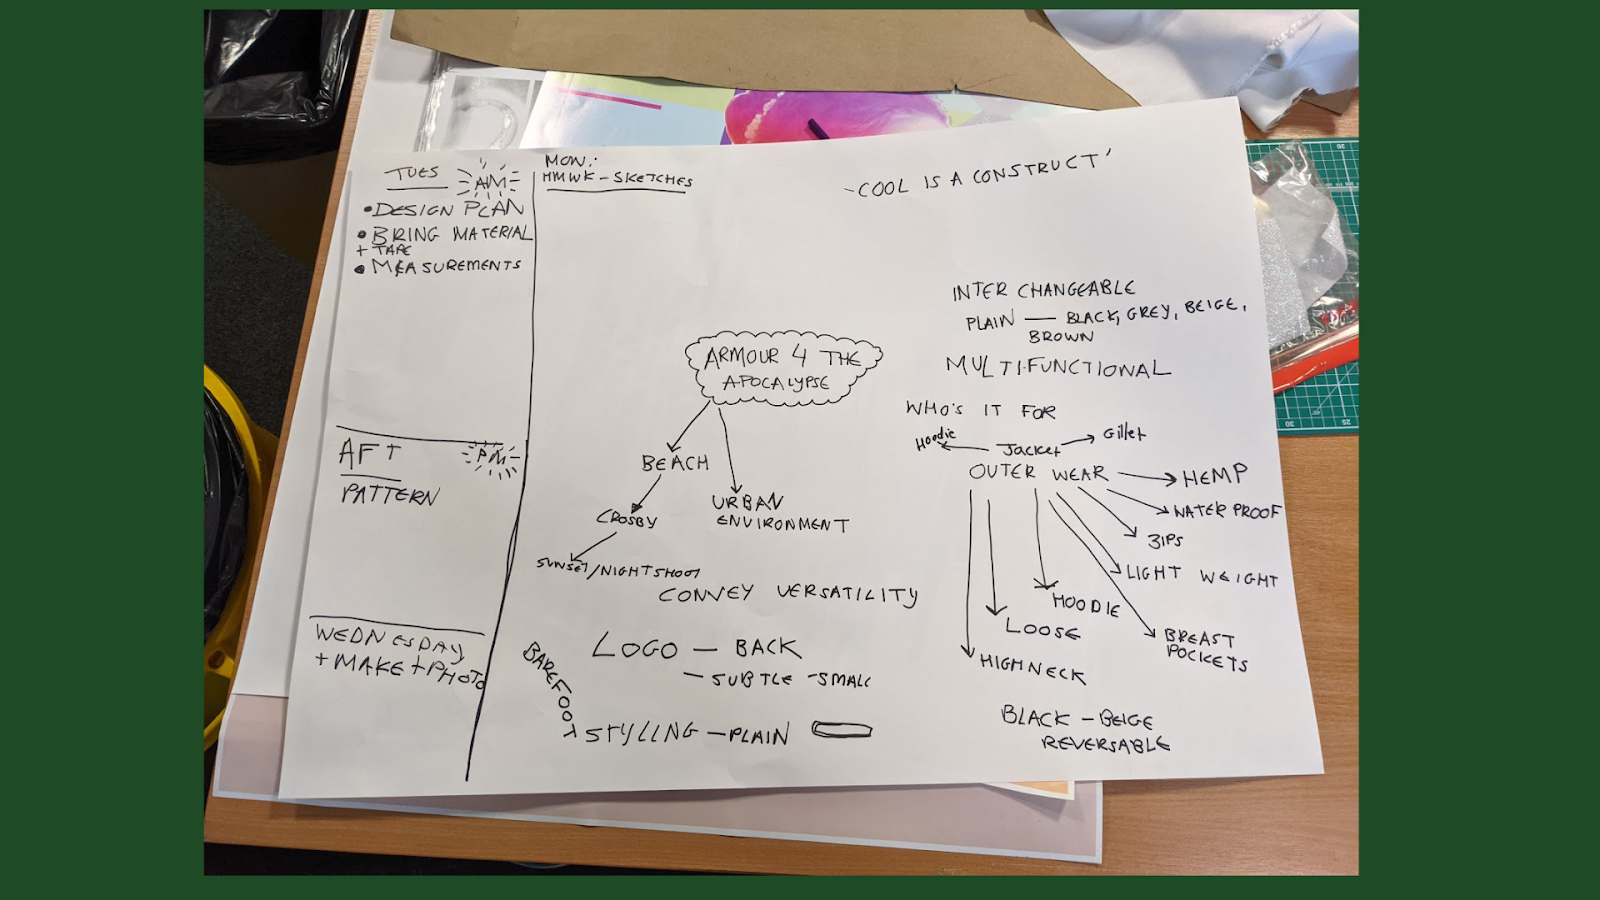 TUES AM
• DESIGN PLAN
• BRING MATERIAL
+ TAPE
• MEASUREMENTS
AFT PM
PATTERN
WEDNESDAY
+ MAKE + PHOTO
MON:
HMWK - SKETCHES
- COOL IS A CONSTRUCT'
ARMOUR 4 THE
APOCALYPSE
BEACH
URBAN
ENVIRONMENT
CROSBY
SUNSET/NIGHTSHOOT
CONVEY VERSATILITY
LOGO - BACK
- SUBTLE - SMALL
BAREFOOT
STYLING - PLAIN
INTER CHANGEABLE
PLAIN — BLACK, GREY, BEIGE,
BROWN
MULTI-FUNCTIONAL
WHO'S IT FOR
Hoodie Jacket Gillet
OUTER WEAR
HEMP
WATER PROOF
ZIPS
LIGHT WEIGHT
HOODIE
BREAST
POCKETS
LOOSE
HIGH NECK
BLACK - BEIGE
REVERSABLE